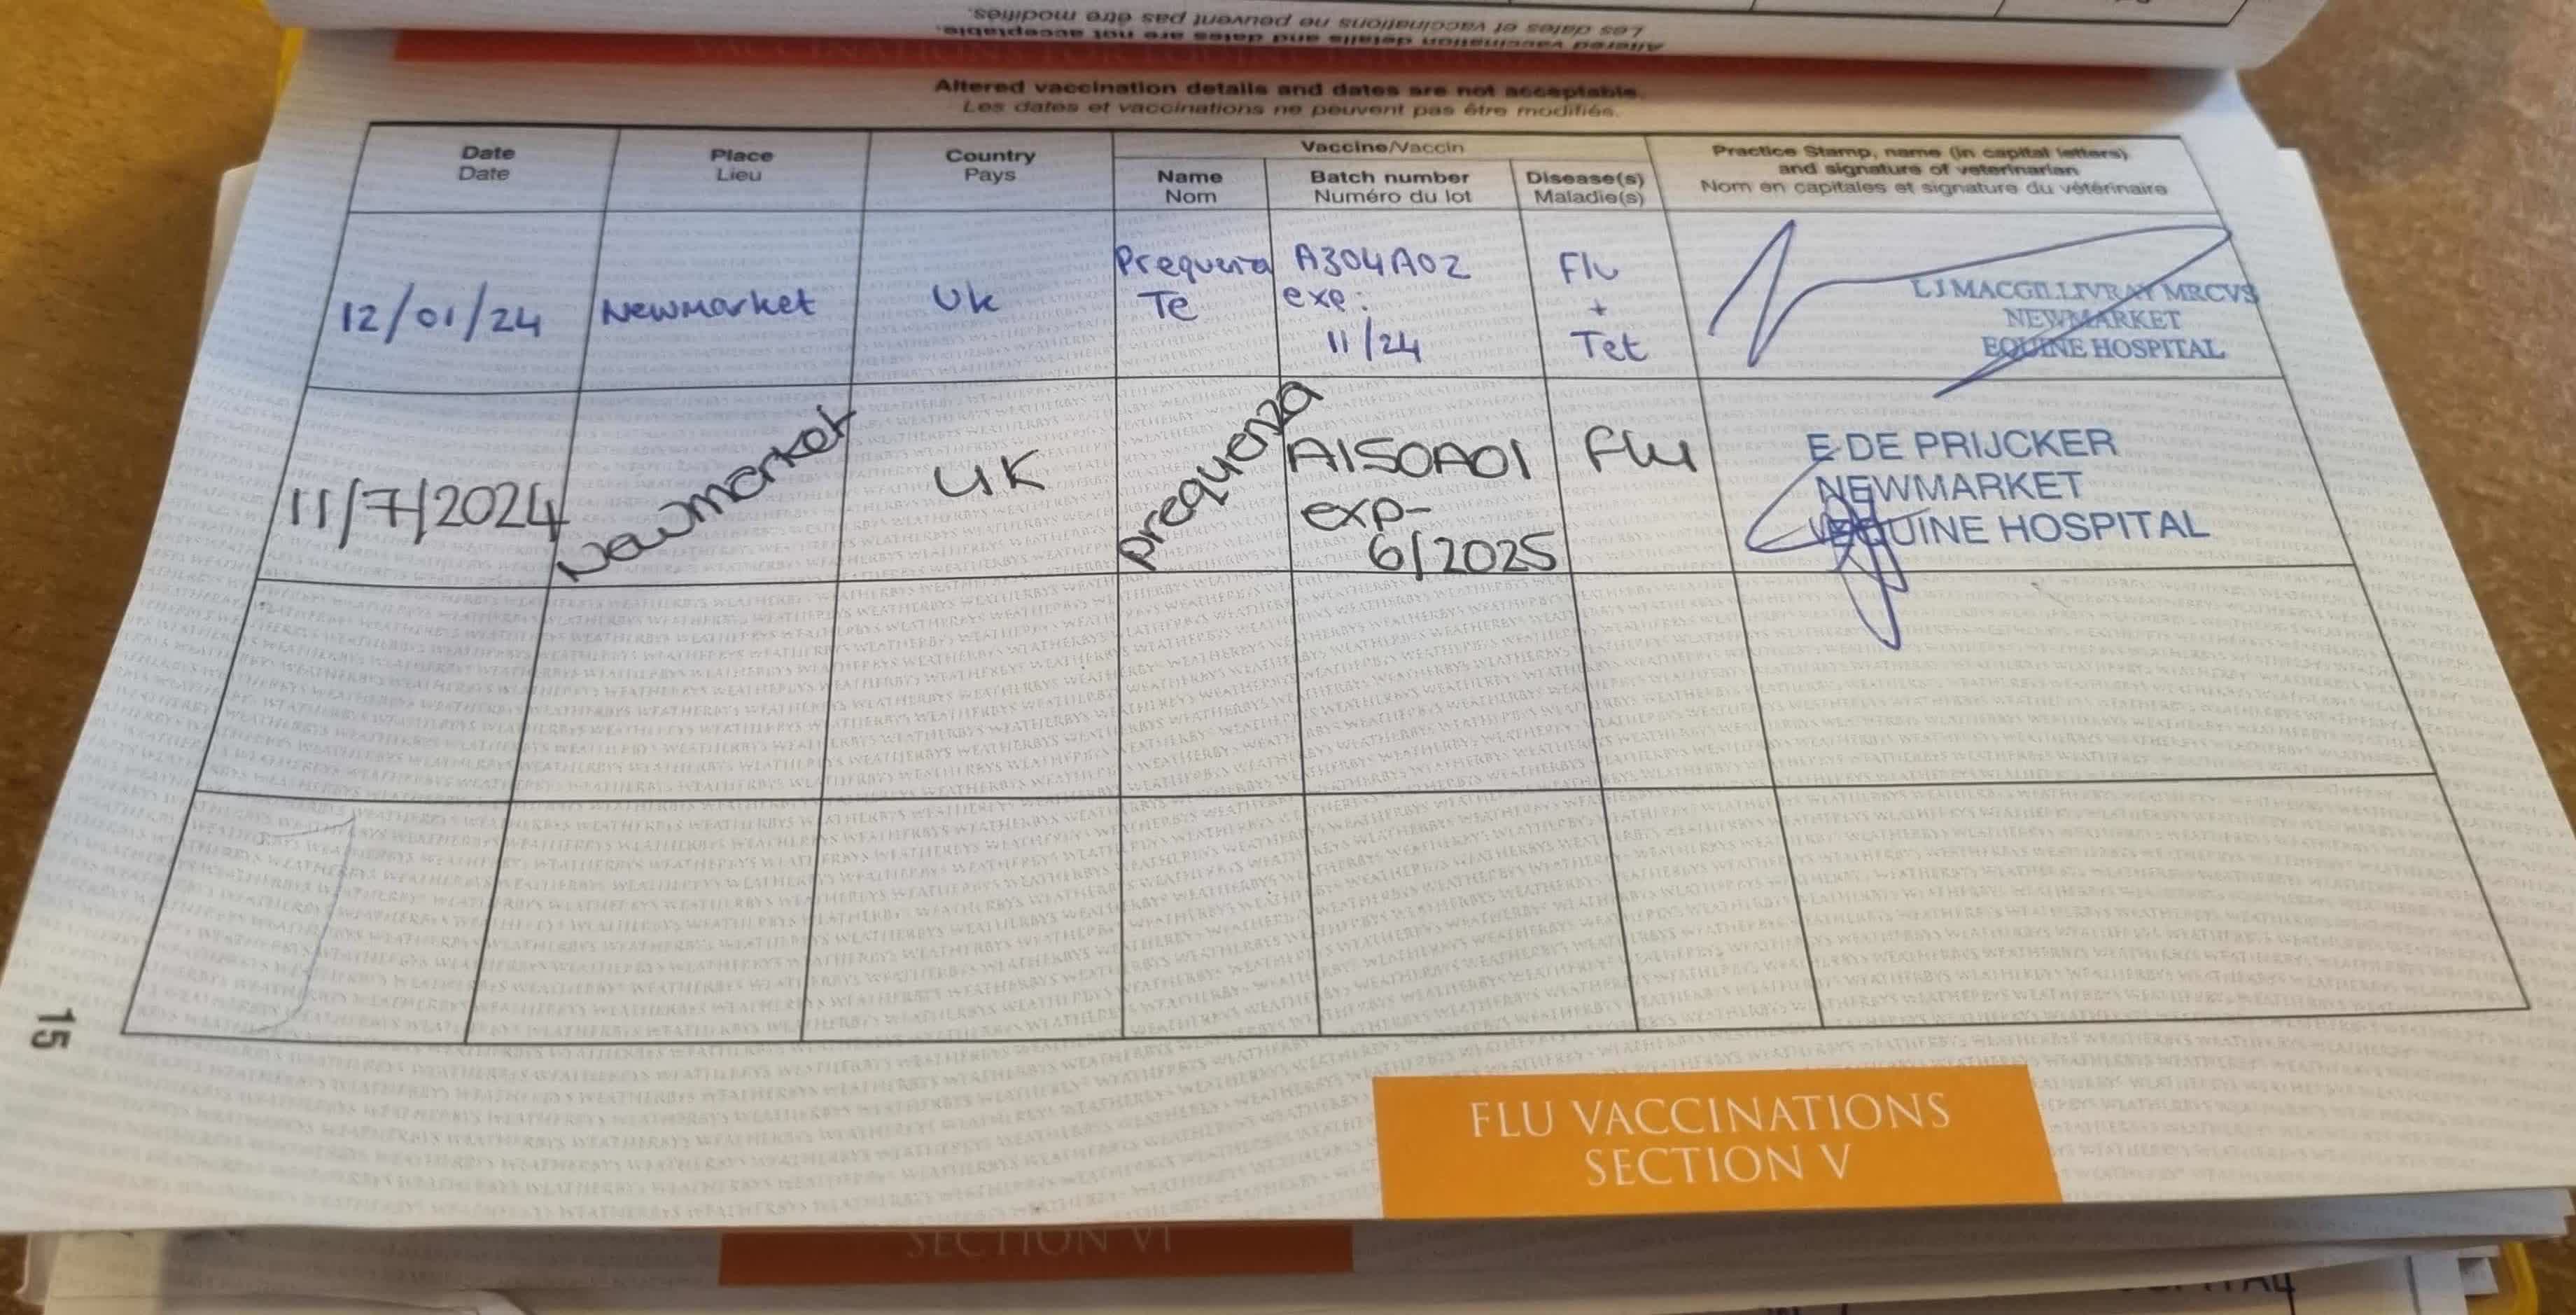 Les dates et vaccinations ne peuvent pas être modifiés.
Altered vaccination details and dates are not acceptable.
Altered vaccination details and dates are not acceptable.
Les dates et vaccinations ne peuvent pas être modifiés.
Date
Date
Place
Lieu
Country
Pays
Vaccine/Vaccin
Name
Nom
Batch number
Numéro du lot
Disease(s)
Maladie(s)
Practice Stamp, name (in capital letters)
and signature of veterinarian
Nom en capitales et signature du vétérinaire
12/01/24
Newmarket
Uk
Prequenza
Te
A304A02
exp:
11/24
Flu
+
Tet
L J MACGILLIVRAY MRCVS
NEWMARKET
EQUINE HOSPITAL
11/7/2024
Newmarket
UK
prequenza
A150A01
exp-
6/2025
Flu
E DE PRIJCKER
NEWMARKET
EQUINE HOSPITAL
15
FLU VACCINATIONS
SECTION V
SECTION VI